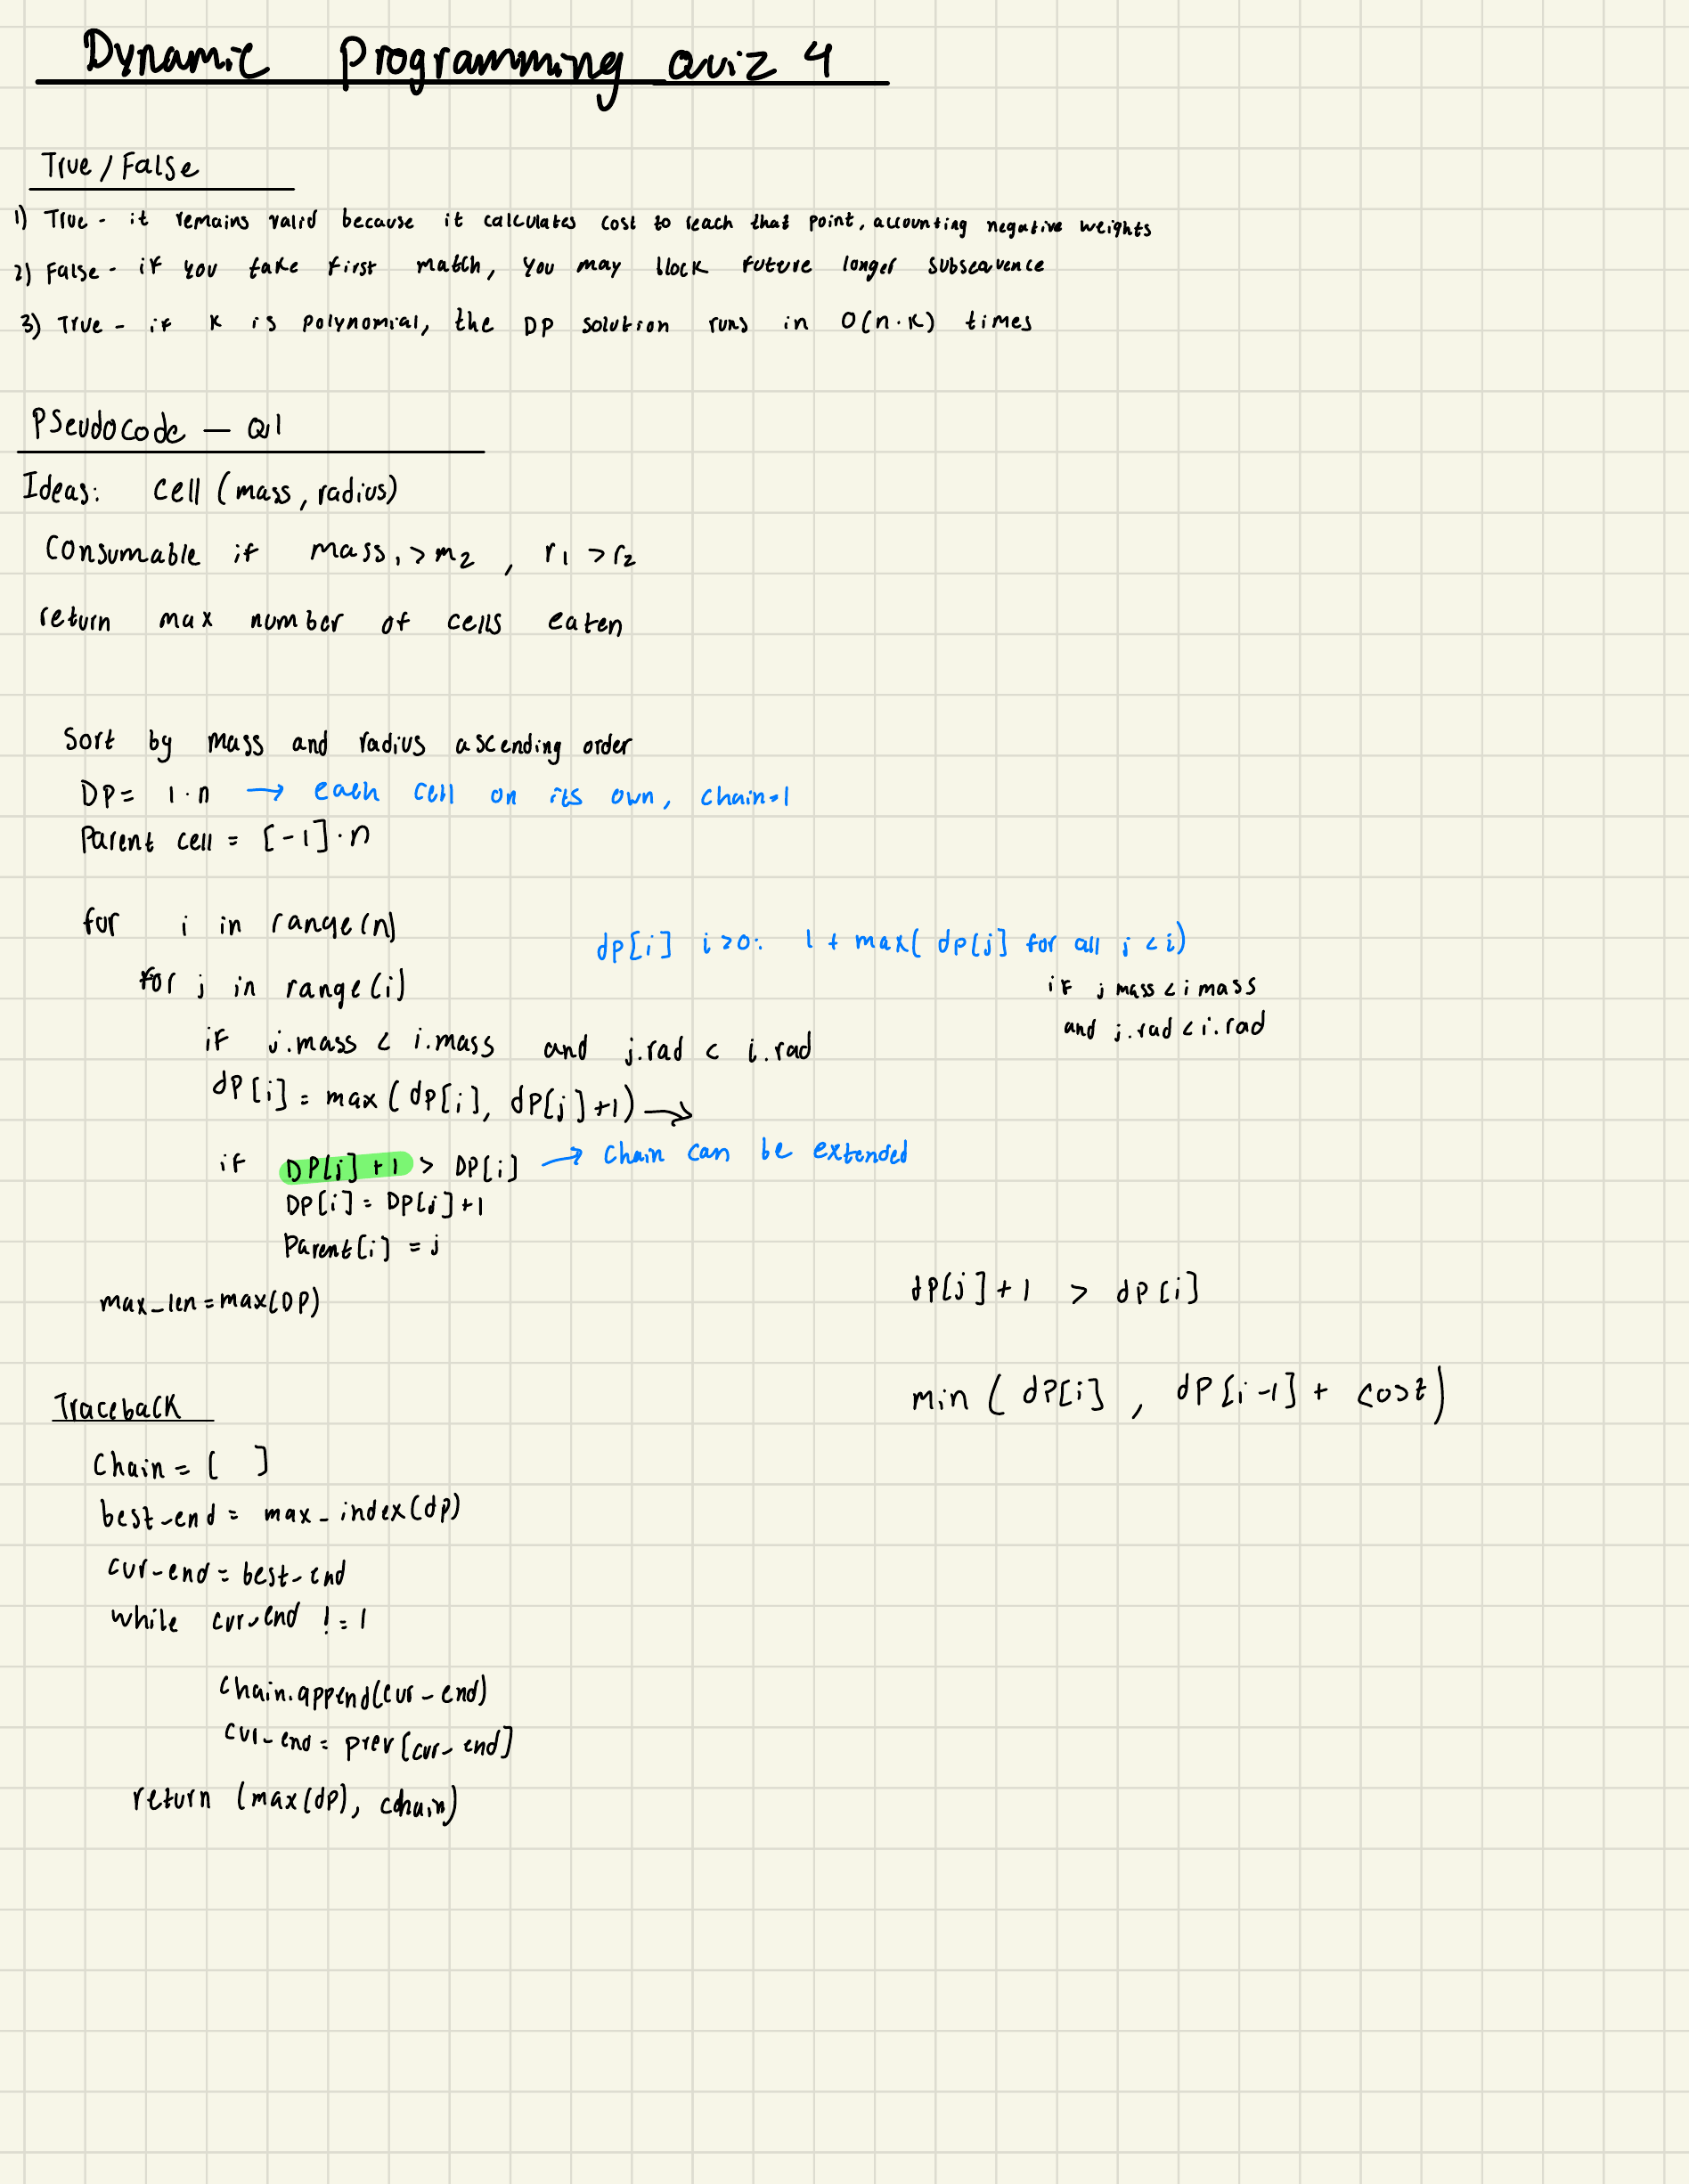 Dynamic Programming Quiz 4
True/False
1) True - it remains valid because it calculates cost to reach that point, accounting negative weights
2) False - if you take first match, you may block future longer subsequence
3) True - if K is polynomial, the DP solution runs in O(n·K) times
Pseudocode — Q1
Ideas: Cell (mass, radius)
Consumable if mass₁ > m₂ , r₁ > r₂
return max number of cells eaten
Sort by mass and radius ascending order
DP = 1·n → each cell on its own, chain=1
Parent cell = [-1]·n
for i in range(n)
dp[i] i>0: 1 + max( dp[j] for all j < i)
for j in range(i)
if j mass < i mass
and j.rad < i.rad
if j.mass < i.mass and j.rad < i.rad
dp[i] = max (dp[i], dp[j]+1) →
if DP[j] + 1 > DP[i] → chain can be extended
DP[i] = DP[j]+1
Parent[i] = j
max_len = max(DP)
dp[j]+1 > dp[i]
min ( dP[i] , dP[i-1] + cost)
Traceback
Chain = [ ]
best_end = max_index(dp)
cur_end = best_end
while cur_end != 1
chain.append(cur_end)
cur_end = prev[cur_end]
return (max(dp), chain)